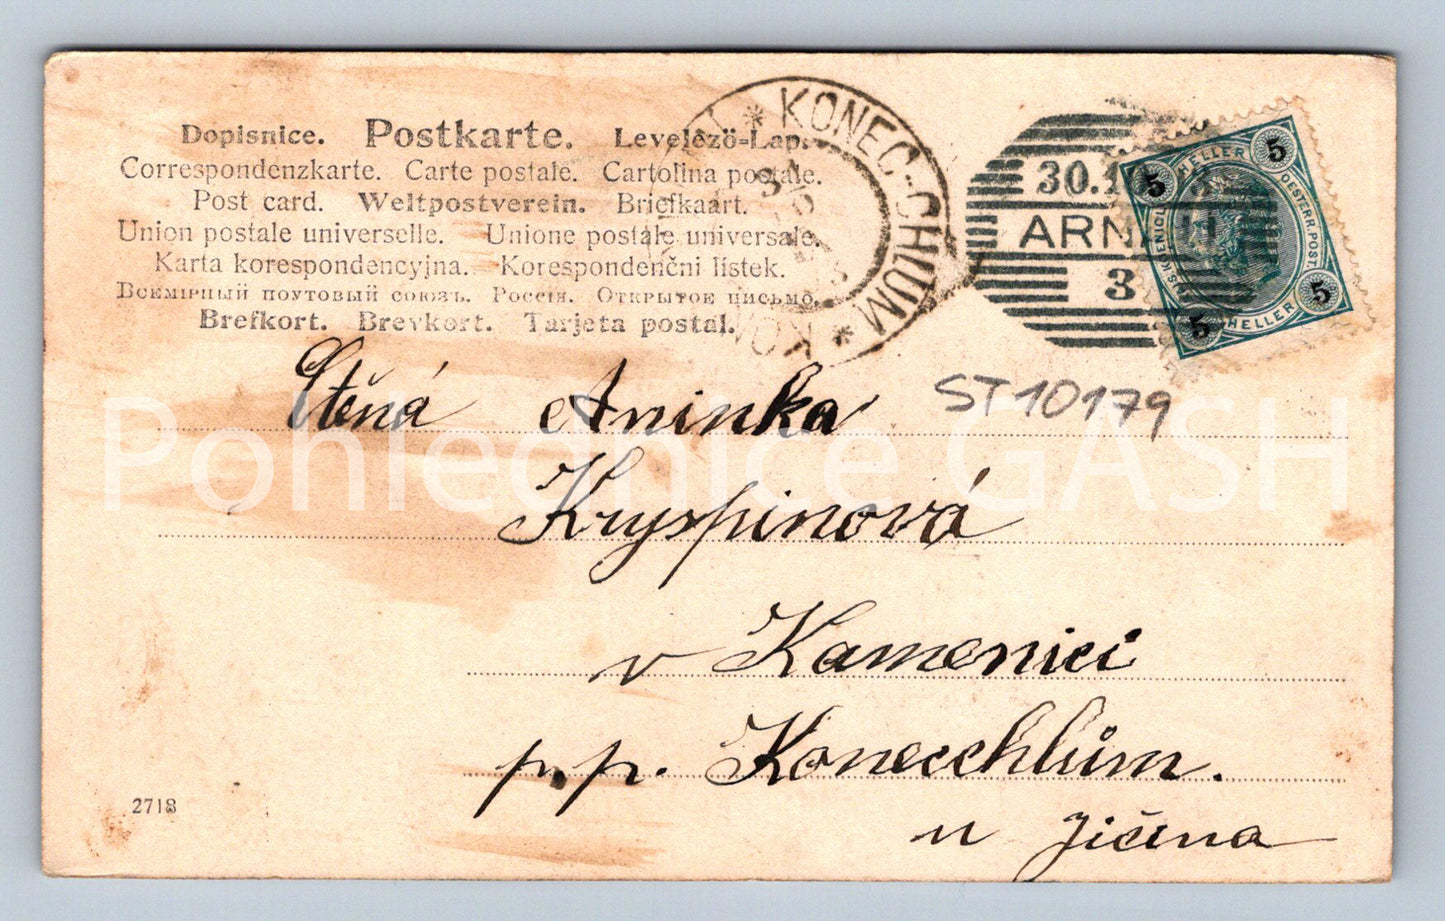 Dopisnice. Postkarte. Levelező-Lap.
Correspondenzkarte. Carte postale. Cartolina postale.
Post card. Weltpostverein. Briefkaart.
Union postale universelle. Unione postale universale.
Karta korespondencyjna. Korespondenčni lístek.
Всемірный почтовый союзъ. Россія. Открытое письмо.
Brefkort. Brevkort. Tarjeta postal.
KONEC-CHLUM
30.
ARNAU
3
5 HELLER 5
OESTERR. POST.
5 HELLER 5
ST10179
Ctěná Aninka
Kryspinová
v Kamenici
p. p. Konecchlům.
u Jičína
2718
Pohlednice GASH